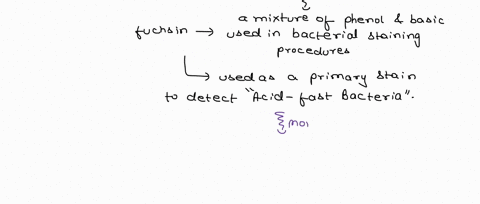 a mixture of phenol & basic
fuchsin → used in bacterial staining
procedures
→ used as a primary stain
to detect "Acid-fast Bacteria".